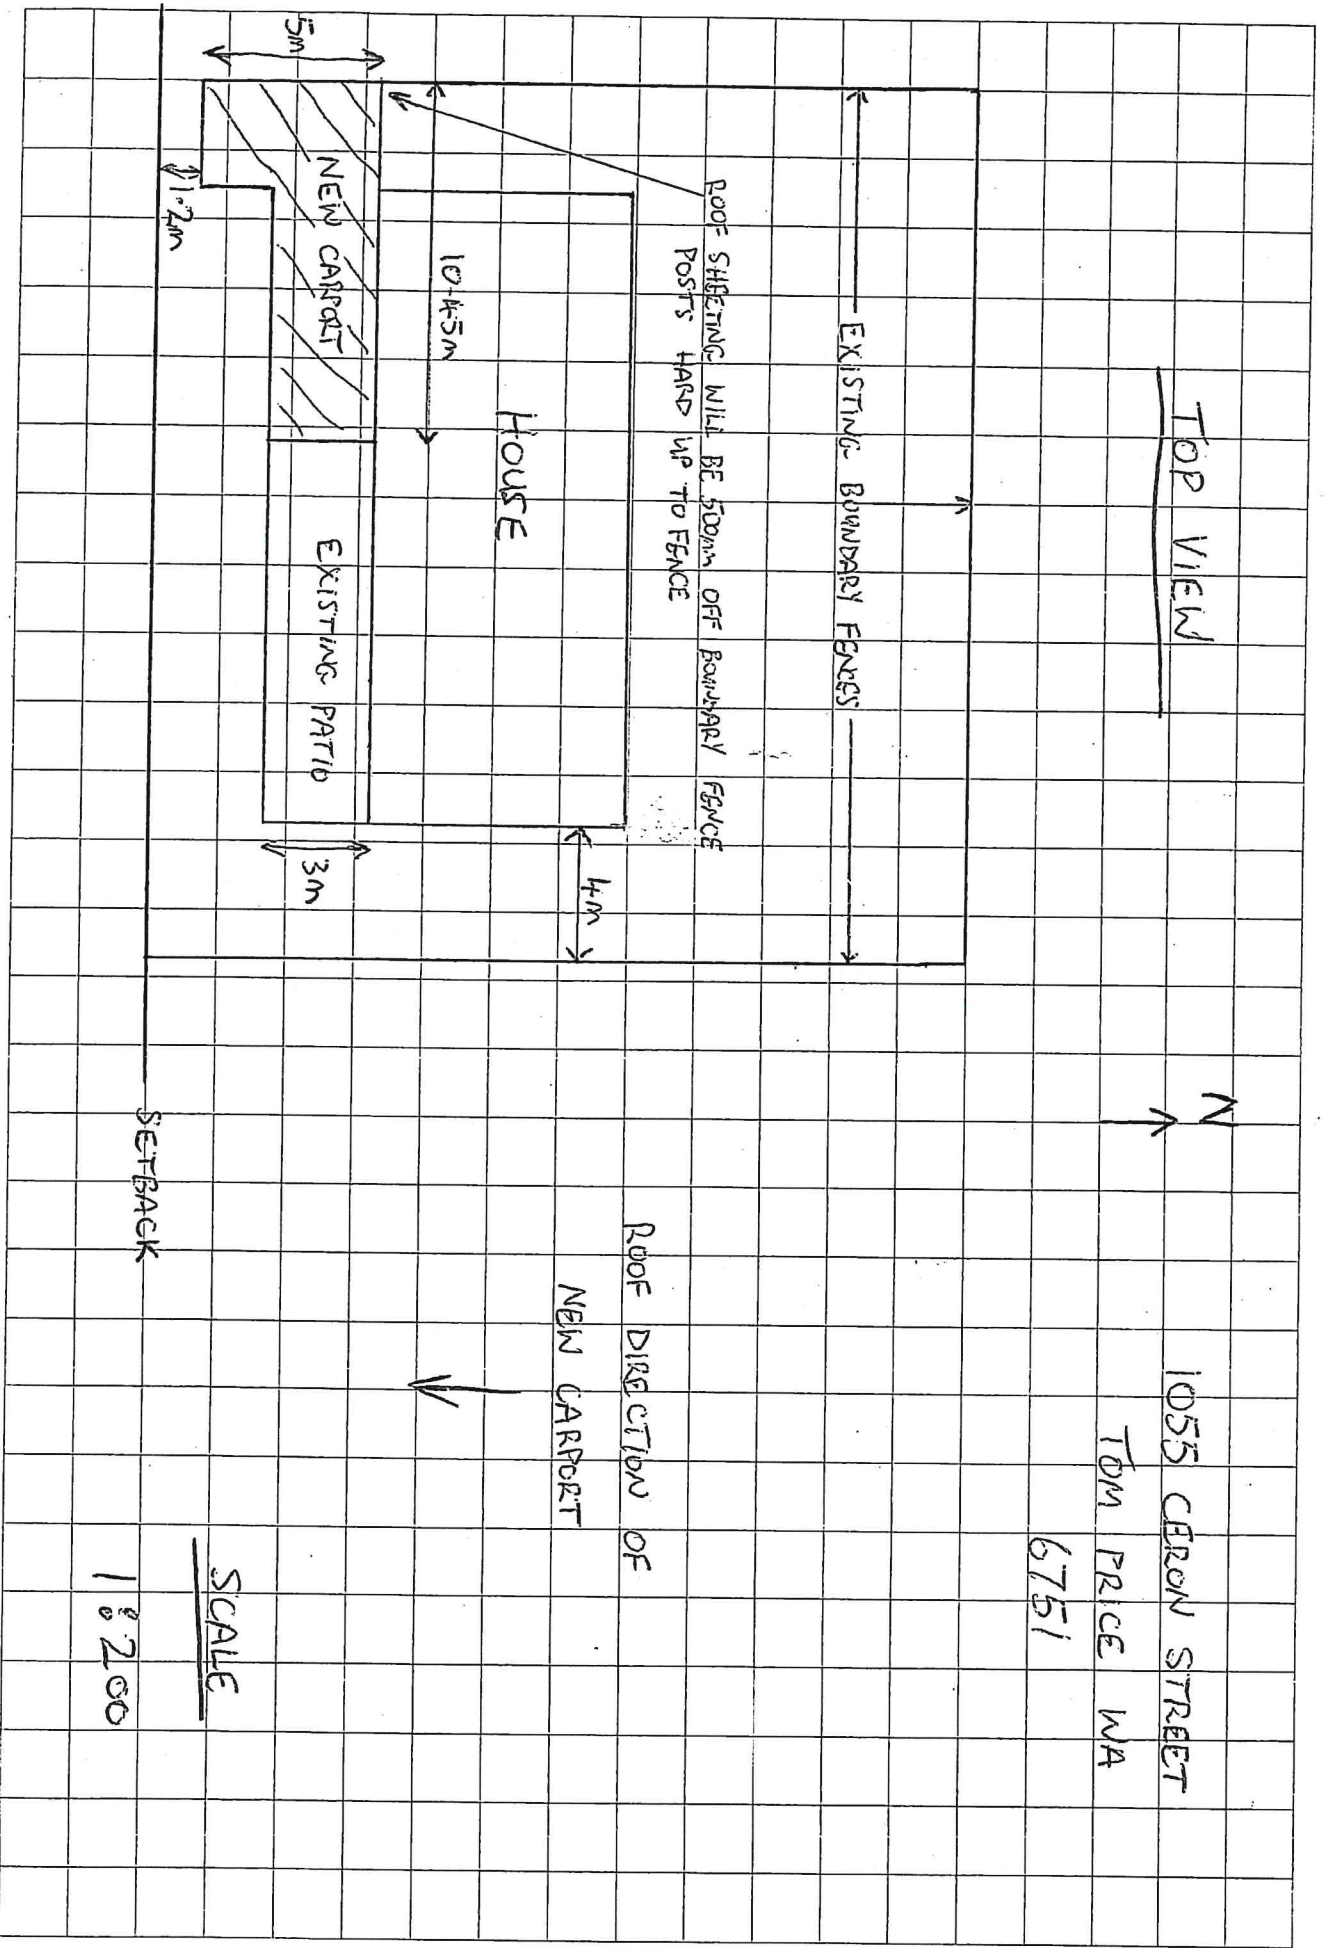 TOP VIEW
N
1055 CERON STREET
TOM PRICE WA
6751
EXISTING BOUNDARY FENCES
ROOF SHEETING WILL BE 500mm OFF BOUNDARY FENCE
POSTS HARD UP TO FENCE
HOUSE
4m
10.45m
5m
NEW CARPORT
EXISTING PATIO
3m
1.2m
SETBACK
ROOF DIRECTION OF
NEW CARPORT
SCALE
1:200